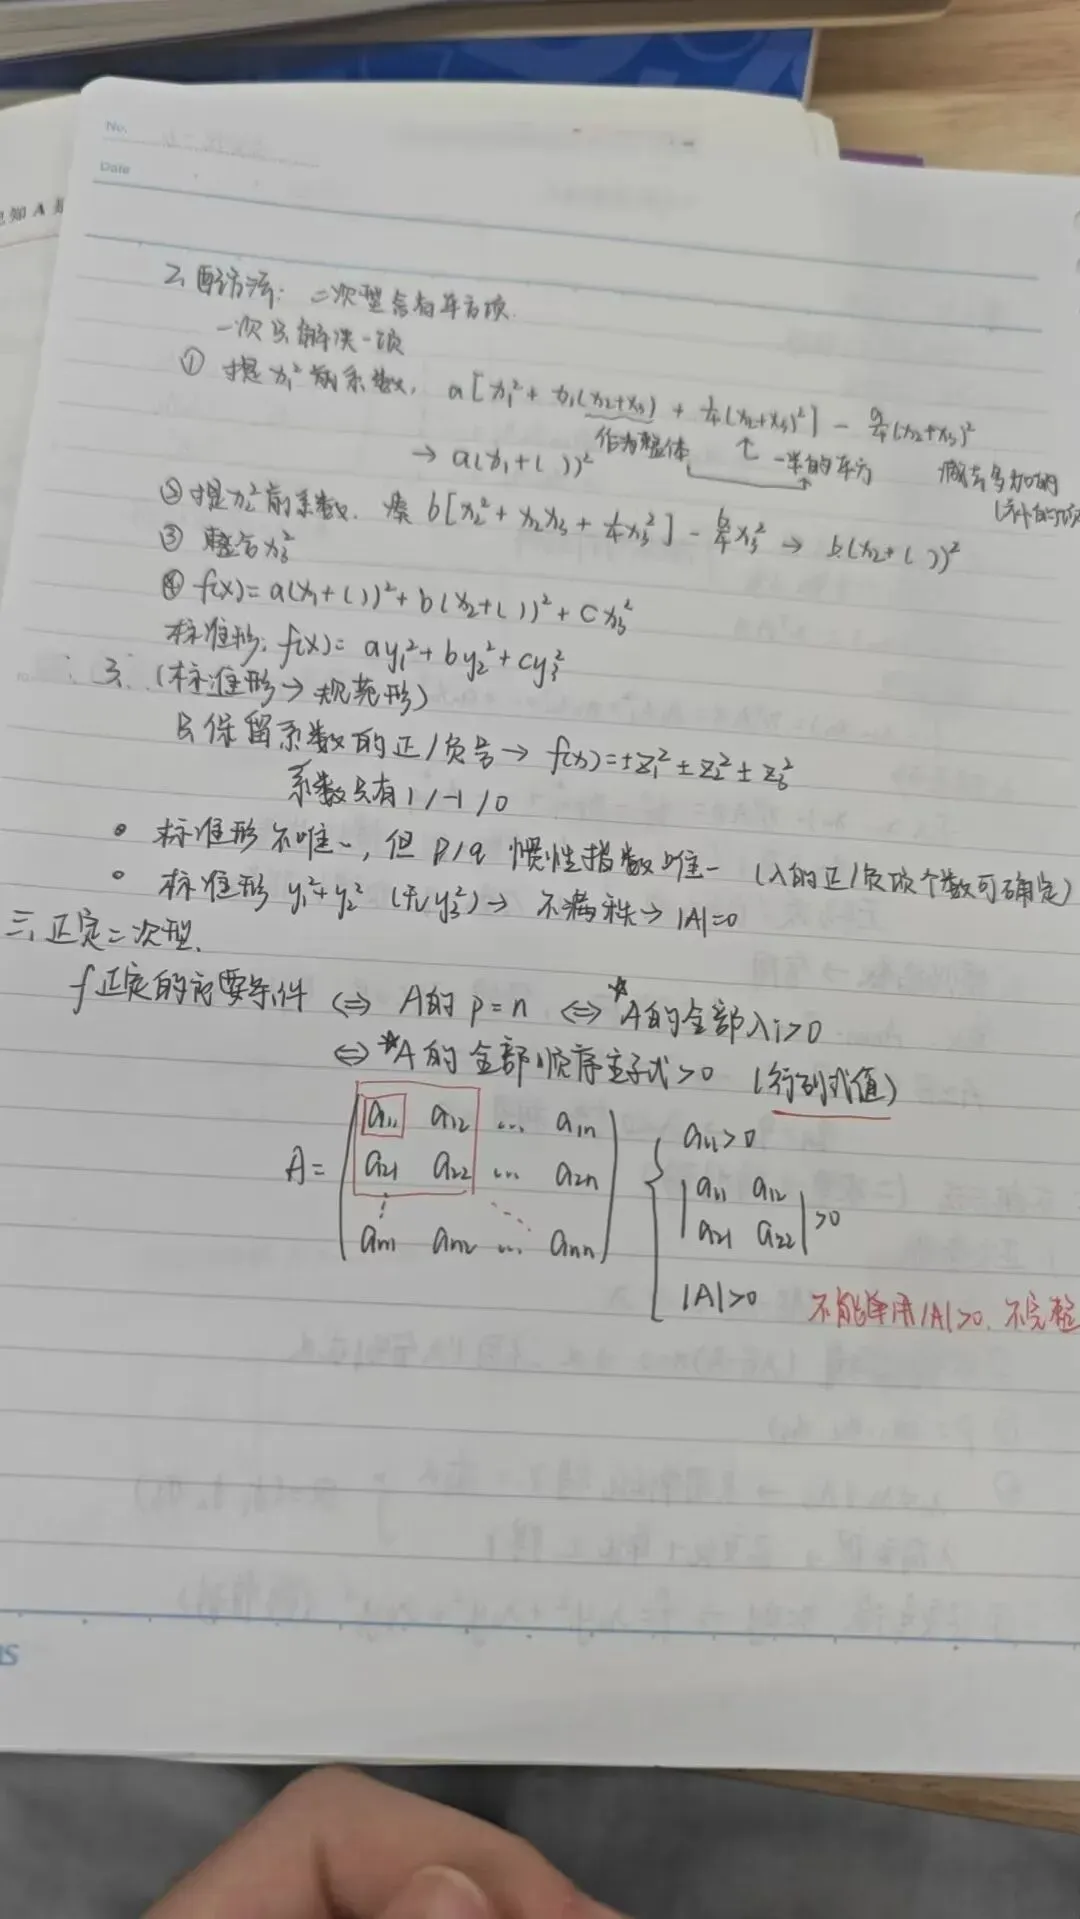 No.
Date
已知 A
2. 配方法: 二次型含有平方项.
一次只解决一项
① 提x₁²前系数, a[x₁² + x₁(x₂+x₃) + ¼(x₂+x₃)²] - a/4(x₂+x₃)²
作为整体 ↑ 一半的平方 减去多加的
→ a(x₁+( ))²
② 提x₂²前系数. 凑 b[x₂² + x₂x₃ + ¼x₃²] - b/4 x₃² → b(x₂+( ))²
③ 整合x₃²
④ f(x)= a(x₁+( ))² + b(x₂+( ))² + cx₃²
标准形: f(x)= ay₁² + by₂² + cy₃²
3. (标准形→规范形)
只保留系数的正/负号→ f(x)=±z₁² ± z₂² ± z₃²
系数只有1/-1/0
• 标准形不唯一, 但 p/q 惯性指数唯一 (λ的正/负项个数可确定)
• 标准形 y₁²+y₂² (无y₃²)→ 不满秩→ |A|=0
三. 正定二次型.
f正定的充要条件 ⇔ A的 p=n ⇔ *A的全部λi>0
⇔ *A的全部顺序主子式>0 (行列式值)
a₁₁ a₁₂ … a₁ₙ a₁₁>0
A= a₂₁ a₂₂ … a₂ₙ |a₁₁ a₁₂
⋮ ⋱ a₂₁ a₂₂|>0
aₙ₁ aₙ₂ … aₙₙ
|A|>0 不能单用|A|>0. 不完整